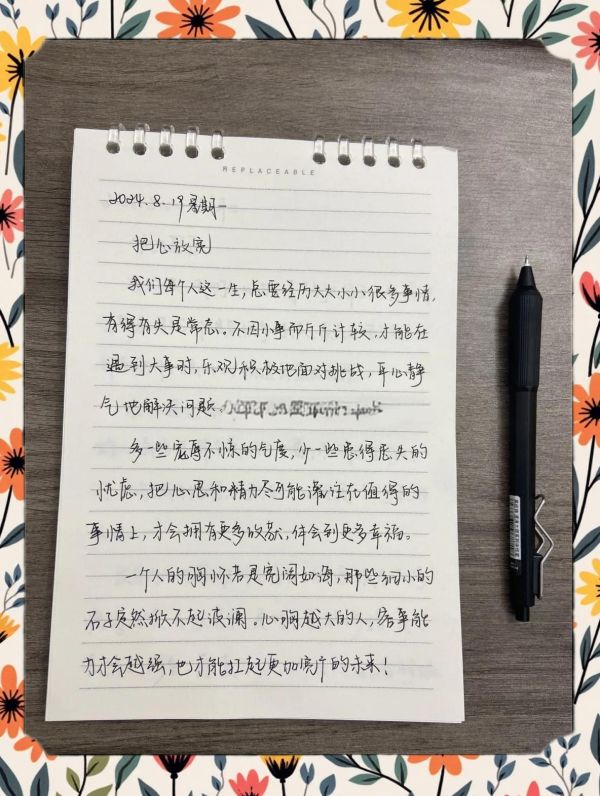 REPLACEABLE
2024.8.19星期一
把心放宽
我们每个人这一生,总要经历大大小小很多事情,
有得有失是常态。不因小事而斤斤计较,才能在
遇到大事时,乐观积极地面对挑战,平心静
气地解决问题。
多一些宠辱不惊的气度,少一些患得患失的
忧虑,把心思和精力尽可能灌注在值得的
事情上,才会拥有更多收获,体会到更多幸福。
一个人的胸怀若是宽阔如海,那些细小的
石子定然掀不起波澜。心胸越大的人,容事能
力才会越强,也才能扛起更加宽广的未来!